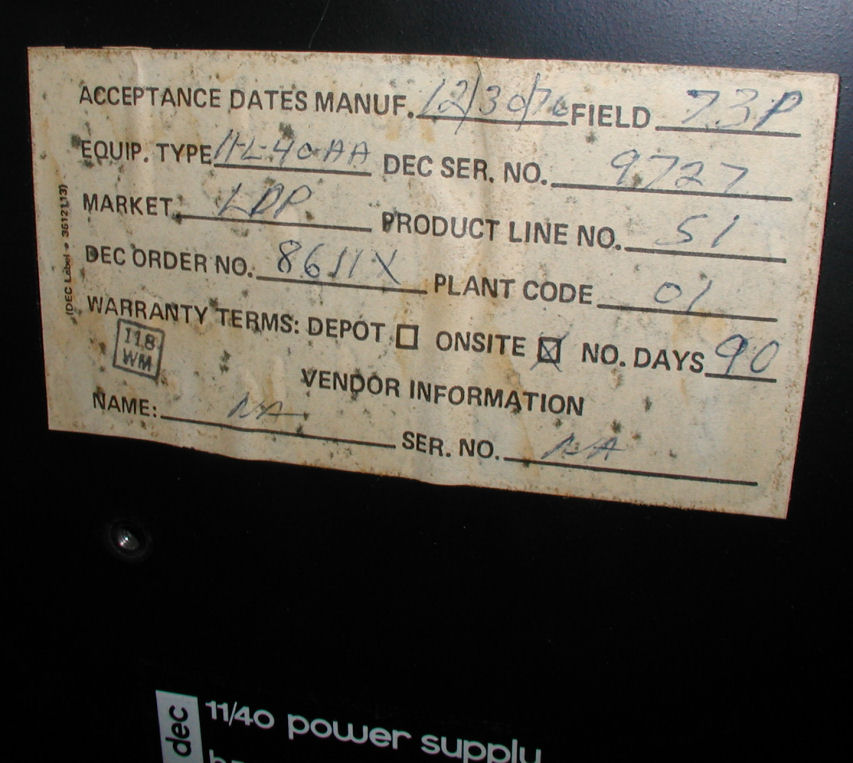 ACCEPTANCE DATES MANUF. 12/30/76 FIELD 73P
EQUIP. TYPE 11-40AA DEC SER. NO. 9727
MARKET LDP PRODUCT LINE NO. 51
DEC ORDER NO. 8611X PLANT CODE 01
WARRANTY TERMS: DEPOT ☐ ONSITE ☒ NO. DAYS 90
118
WM
VENDOR INFORMATION
NAME: NA SER. NO. NA
(DEC Label # 3612113)
dec 11/40 power supply